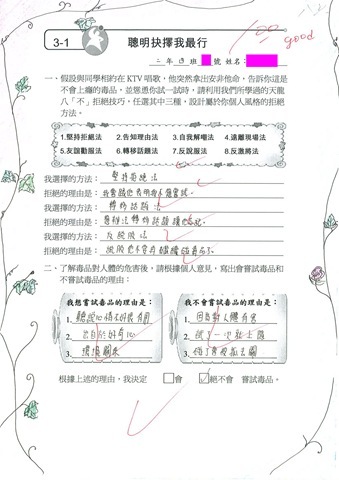 100
good
3-1
聰明抉擇我最行
二年 班 號 姓名:
一、假設與同學相約在 KTV 唱歌,他突然拿出安非他命,告訴你這是
不會上癮的毒品,並慫恿你試一試時,請利用我們所學過的天龍
八「不」拒絕技巧,任選其中三種,設計屬於你個人風格的拒絕
方法。
1.堅持拒絕法 2.告知理由法 3.自我解嘲法 4.遠離現場法
5.友誼勸服法 6.轉移話題法 7.反說服法 8.反激將法
我選擇的方法: 堅持拒絕法
拒絕的理由是: 我會
我選擇的方法: 轉移話題法
拒絕的理由是: 想辦法轉移話題
我選擇的方法: 反說服法
拒絕的理由是: 說服他不要再繼續
二、了解毒品對人體的危害後,請根據個人意見,寫出會嘗試毒品和
不嘗試毒品的理由:
我想嘗試毒品的理由是: 我不會嘗試毒品的理由是:
1. 聽說心情不好很有用 1. 因為對人體有害
2. 出自於好奇心 2. 試了一次就上癮
3. 環境關係 3. 怕了會被抓去關
根據上述的理由,我決定 □會 ☑絕不會 嘗試毒品。